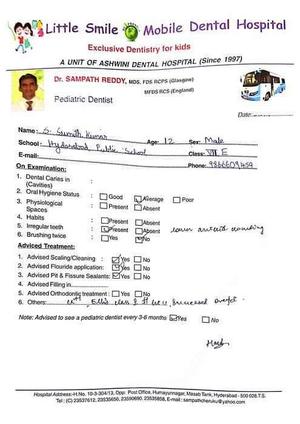 Little Smile Mobile Dental Hospital
Exclusive Dentistry for kids
A UNIT OF ASHWINI DENTAL HOSPITAL (Since 1997)
Dr. SAMPATH REDDY, MDS, FDS RCPS (Glasgow)
MFDS RCS (England)
Pediatric Dentist
Date:
Name: S. Sumith Kumar Age: 12 Sex: Male
School: Hyderabad Public School Class: VII E
E-mail: Phone: 9866609459
On Examination:
1. Dental Caries in (Cavities) :
2. Oral Hygiene Status : Good Average Poor
3. Physiological Spaces : Present Absent
4. Habits : Present Absent
5. Irregular teeth : Present Absent lower anterior crowding
6. Brushing twice : Yes No
Adviced Treatment:
1. Advised Scaling/Cleaning : Yes No
2. Advised Flouride application: Yes No
3. Advised Pit & Fissure Sealants: Yes No
4. Advised Filling in
5. Advised Orthodontic treatment : Yes No
6. Others: class
Note: Advised to see a pediatric dentist every 3-6 months Yes No
Hospital Address:-H.No. 10-3-304/13, Opp. Post Office, Humayunnagar, Masab Tank, Hyderabad - 500 028.T.S.
Tel: (C) 23537612, 23535656, 23590690, 23535858, E-mail: sampathcheruku@yahoo.com